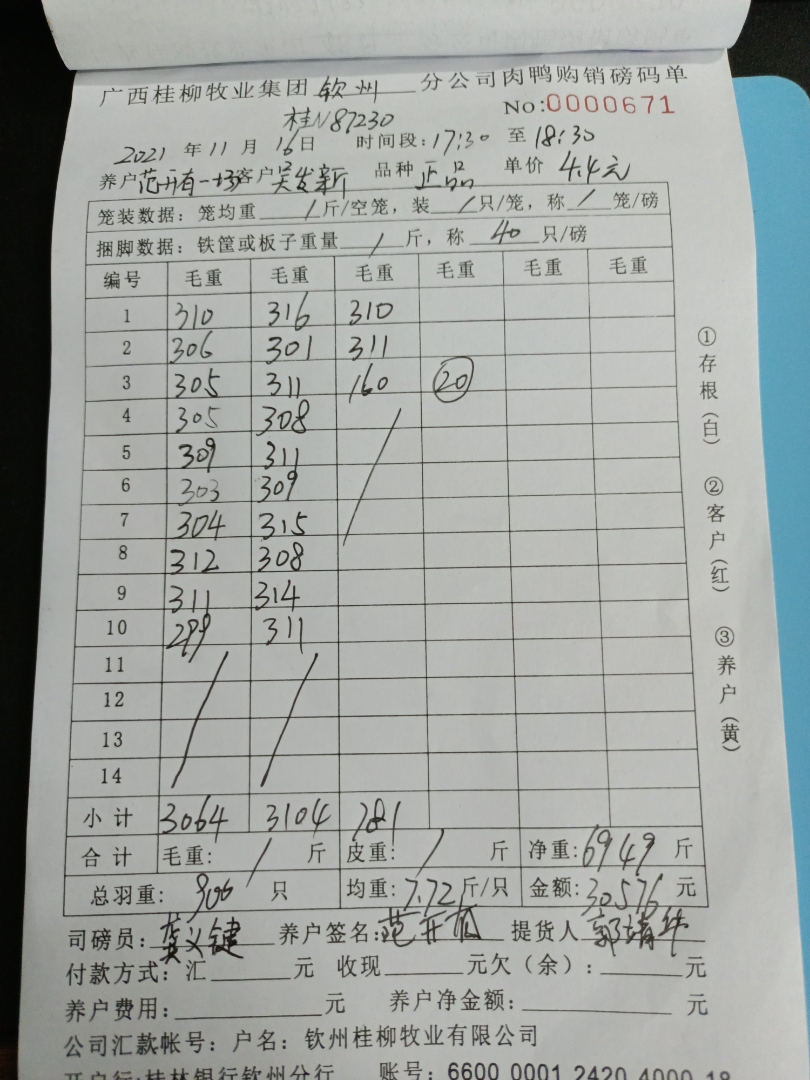 广西桂柳牧业集团 钦州 分公司肉鸭购销磅码单
桂N87230 No:0000671
2021 年 11 月 16 日 时间段: 17:30 至 18:30
养户 范开有一场 客户 吴发新 品种 正品 单价 4.4元
笼装数据: 笼均重 / 斤/空笼, 装 / 只/笼, 称 / 笼/磅
捆脚数据: 铁筐或板子重量 / 斤, 称 40 只/磅
编号 毛重 毛重 毛重 毛重 毛重 毛重
1 310 316 310
2 306 301 311
3 305 311 160 20
4 305 308
5 309 311
6 303 309
7 304 315
8 312 308
9 311 314
10 299 311
11
12
13
14
小计 3064 3104 781
合计 毛重: / 斤 皮重: / 斤 净重: 6949 斤
总羽重: 900 只 均重: 7.72 斤/只 金额: 30576 元
司磅员: 龚义键 养户签名: 范开有 提货人 郭靖华
付款方式: 汇 元 收现 元欠(余): 元
养户费用: 元 养户净金额: 元
公司汇款帐号: 户名: 钦州桂柳牧业有限公司
开户行:桂林银行钦州分行 账号: 6600 0001 2420 4000 18
①存根(白) ②客户(红) ③养户(黄)